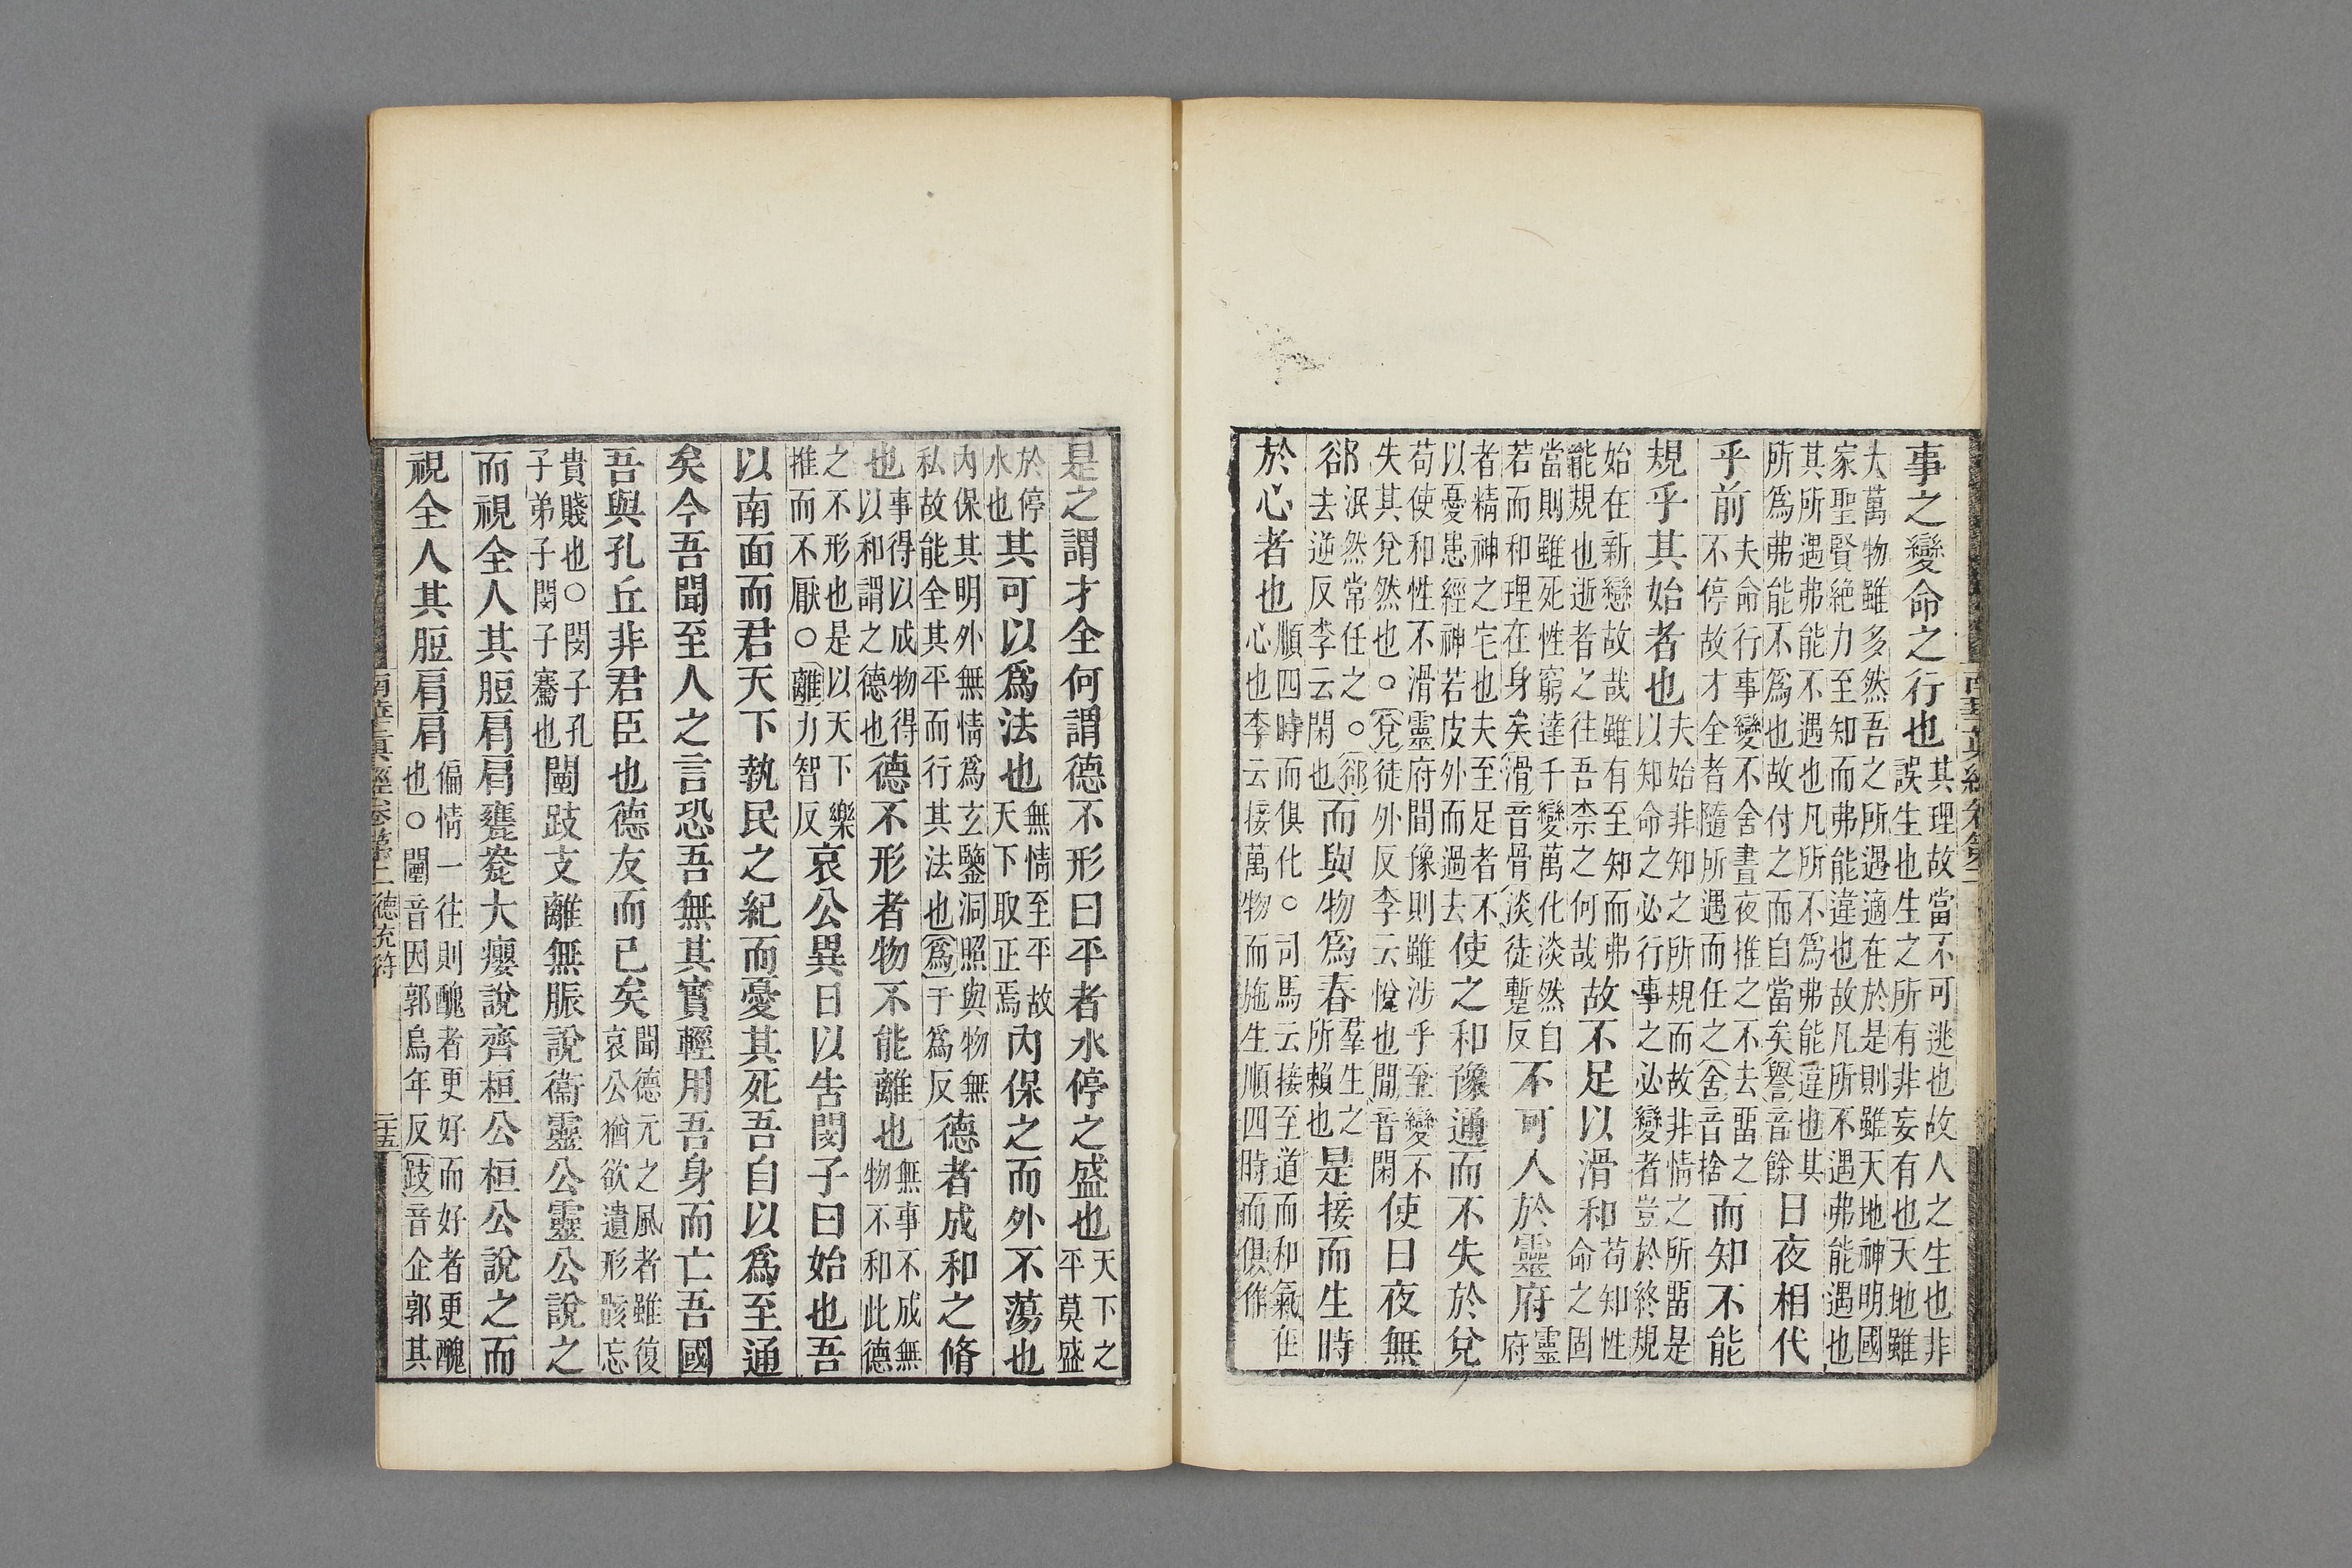 事之變命之行也其理故當不可逃也故人之生也非誤生也生之所有非妄有也天地雖
大萬物雖多然吾之所遇適在於是則雖天地神明國家聖賢絶力至知而弗能違也故凡所不遇弗能遇也
其所遇弗能不遇也凡所不爲弗能違也其所爲弗能不爲也故付之而自當矣譽音餘日夜相代
乎前夫命行事變不舍晝夜推之不去畱之不停故才全者隨所遇而任之舍音捨而知不能
規乎其始者也夫始非知之所規而故非情之所畱是以知命之必行事之必變者豈於終規
始在新戀故哉雖有至知而弗能規也逝者之往吾柰之何哉故不足以滑和苟知性命之固
當則雖死性窮達千變萬化淡然自若而和理在身矣滑音骨淡徒暫反不可人於靈府靈府
者精神之宅也夫至足者不以憂患經神若皮外而過去使之和豫通而不失於兌
苟使和性不滑靈府間豫則雖涉乎至變不失其兌然也○兌徒外反李云悅也閒音閑使日夜無
郤泯然常任之○郤去逆反李云閑也而與物爲春羣生之所賴也是接而生時
於心者也順四時而俱化○司馬云接至道而和氣在心也李云接萬物而施生順四時而俱作
是之謂才全何謂德不形曰平者水停之盛也天下之平莫盛
於停水也其可以爲法也無情至平故天下取正焉內保之而外不蕩也
內保其明外無情爲玄鑒洞照與物無私故能全其平而行其法也爲于爲反德者成和之脩
也事得以成物得以和謂之德也德不形者物不能離也無事不成無物不和此德
之不形也是以天下樂推而不厭○離力智反哀公異日以吿閔子曰始也吾
以南面而君天下執民之紀而憂其死吾自以爲至通
矣今吾聞至人之言恐吾無其實輕用吾身而亡吾國
吾與孔丘非君臣也德友而已矣聞德充之風者雖復哀公猶欲遺形骸忘
貴賤也○閔子孔子弟子閔子騫也闉跂支離無脤說衞靈公靈公說之
而視全人其脰肩肩甕㼜大癭說齊桓公桓公說之而
視全人其脰肩肩偏情一往則醜者更好而好者更醜也○闉音因郭烏年反跂音企郭其
南華眞經卷第二 德充符 二十五